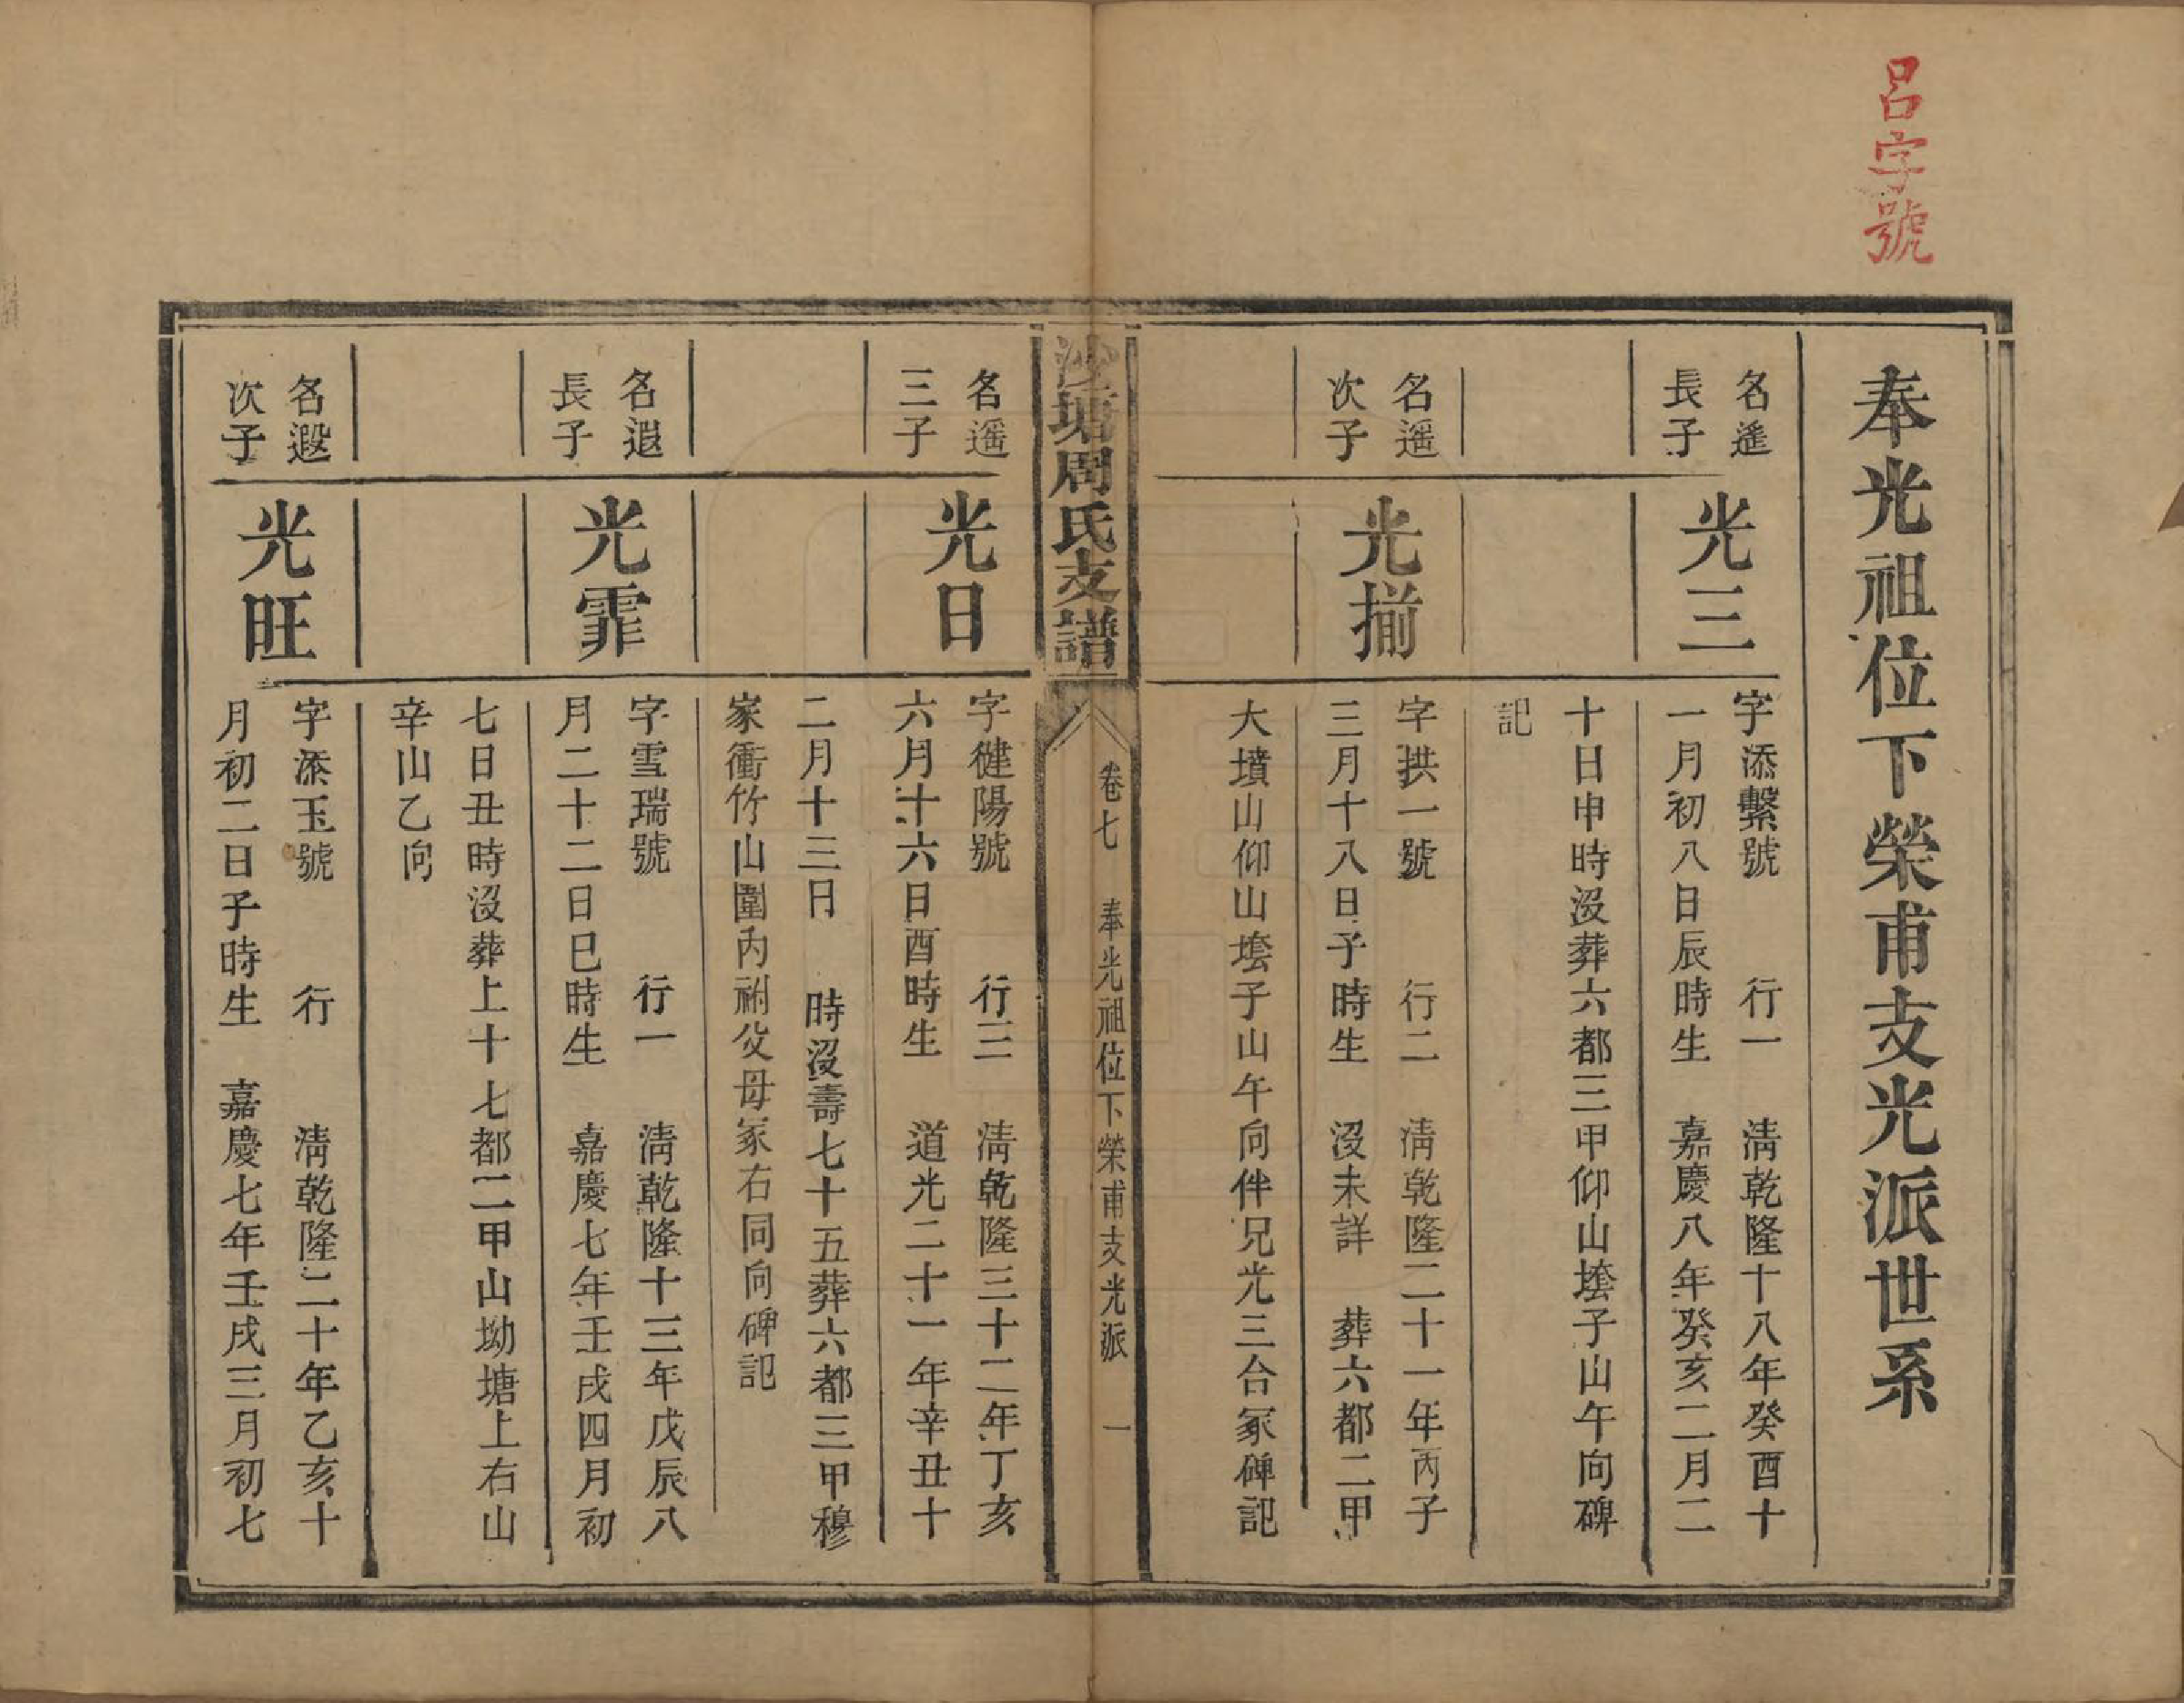 呂字號
奉光祖位下榮甫支光派世系
名遙
長子
光三
字添繫號　行一　清乾隆十八年癸酉十
一月初八日辰時生　嘉慶八年癸亥二月二
十日申時沒葬六都三甲仰山塋子山午向碑
記
名遙
次子
光揃
字拱一號　行二　清乾隆二十一年丙子
三月十八日子時生　沒未詳　葬六都二甲
大墳山仰山塋子山午向伴兄光三合冢碑記
沙塘周氏支譜
卷七　奉光祖位下榮甫支光派　一
名遙
三子
光日
字健陽號　行三　清乾隆三十二年丁亥
六月十六日酉時生　道光二十一年辛丑十
二月十三日　時沒壽七十五葬六都三甲穆
家衝竹山圍內祔父母冢右同向碑記
名遐
長子
光霏
字雪瑞號　行一　清乾隆十三年戊辰八
月二十二日巳時生　嘉慶七年壬戌四月初
七日丑時沒葬上十七都二甲山坳塘上右山
辛山乙向
名遐
次子
光旺
字添玉號　行　清乾隆二十年乙亥十
月初二日子時生　嘉慶七年壬戌三月初七